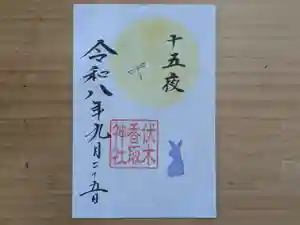 十五夜
伏木
香取
神社
令和八年九月二十五日